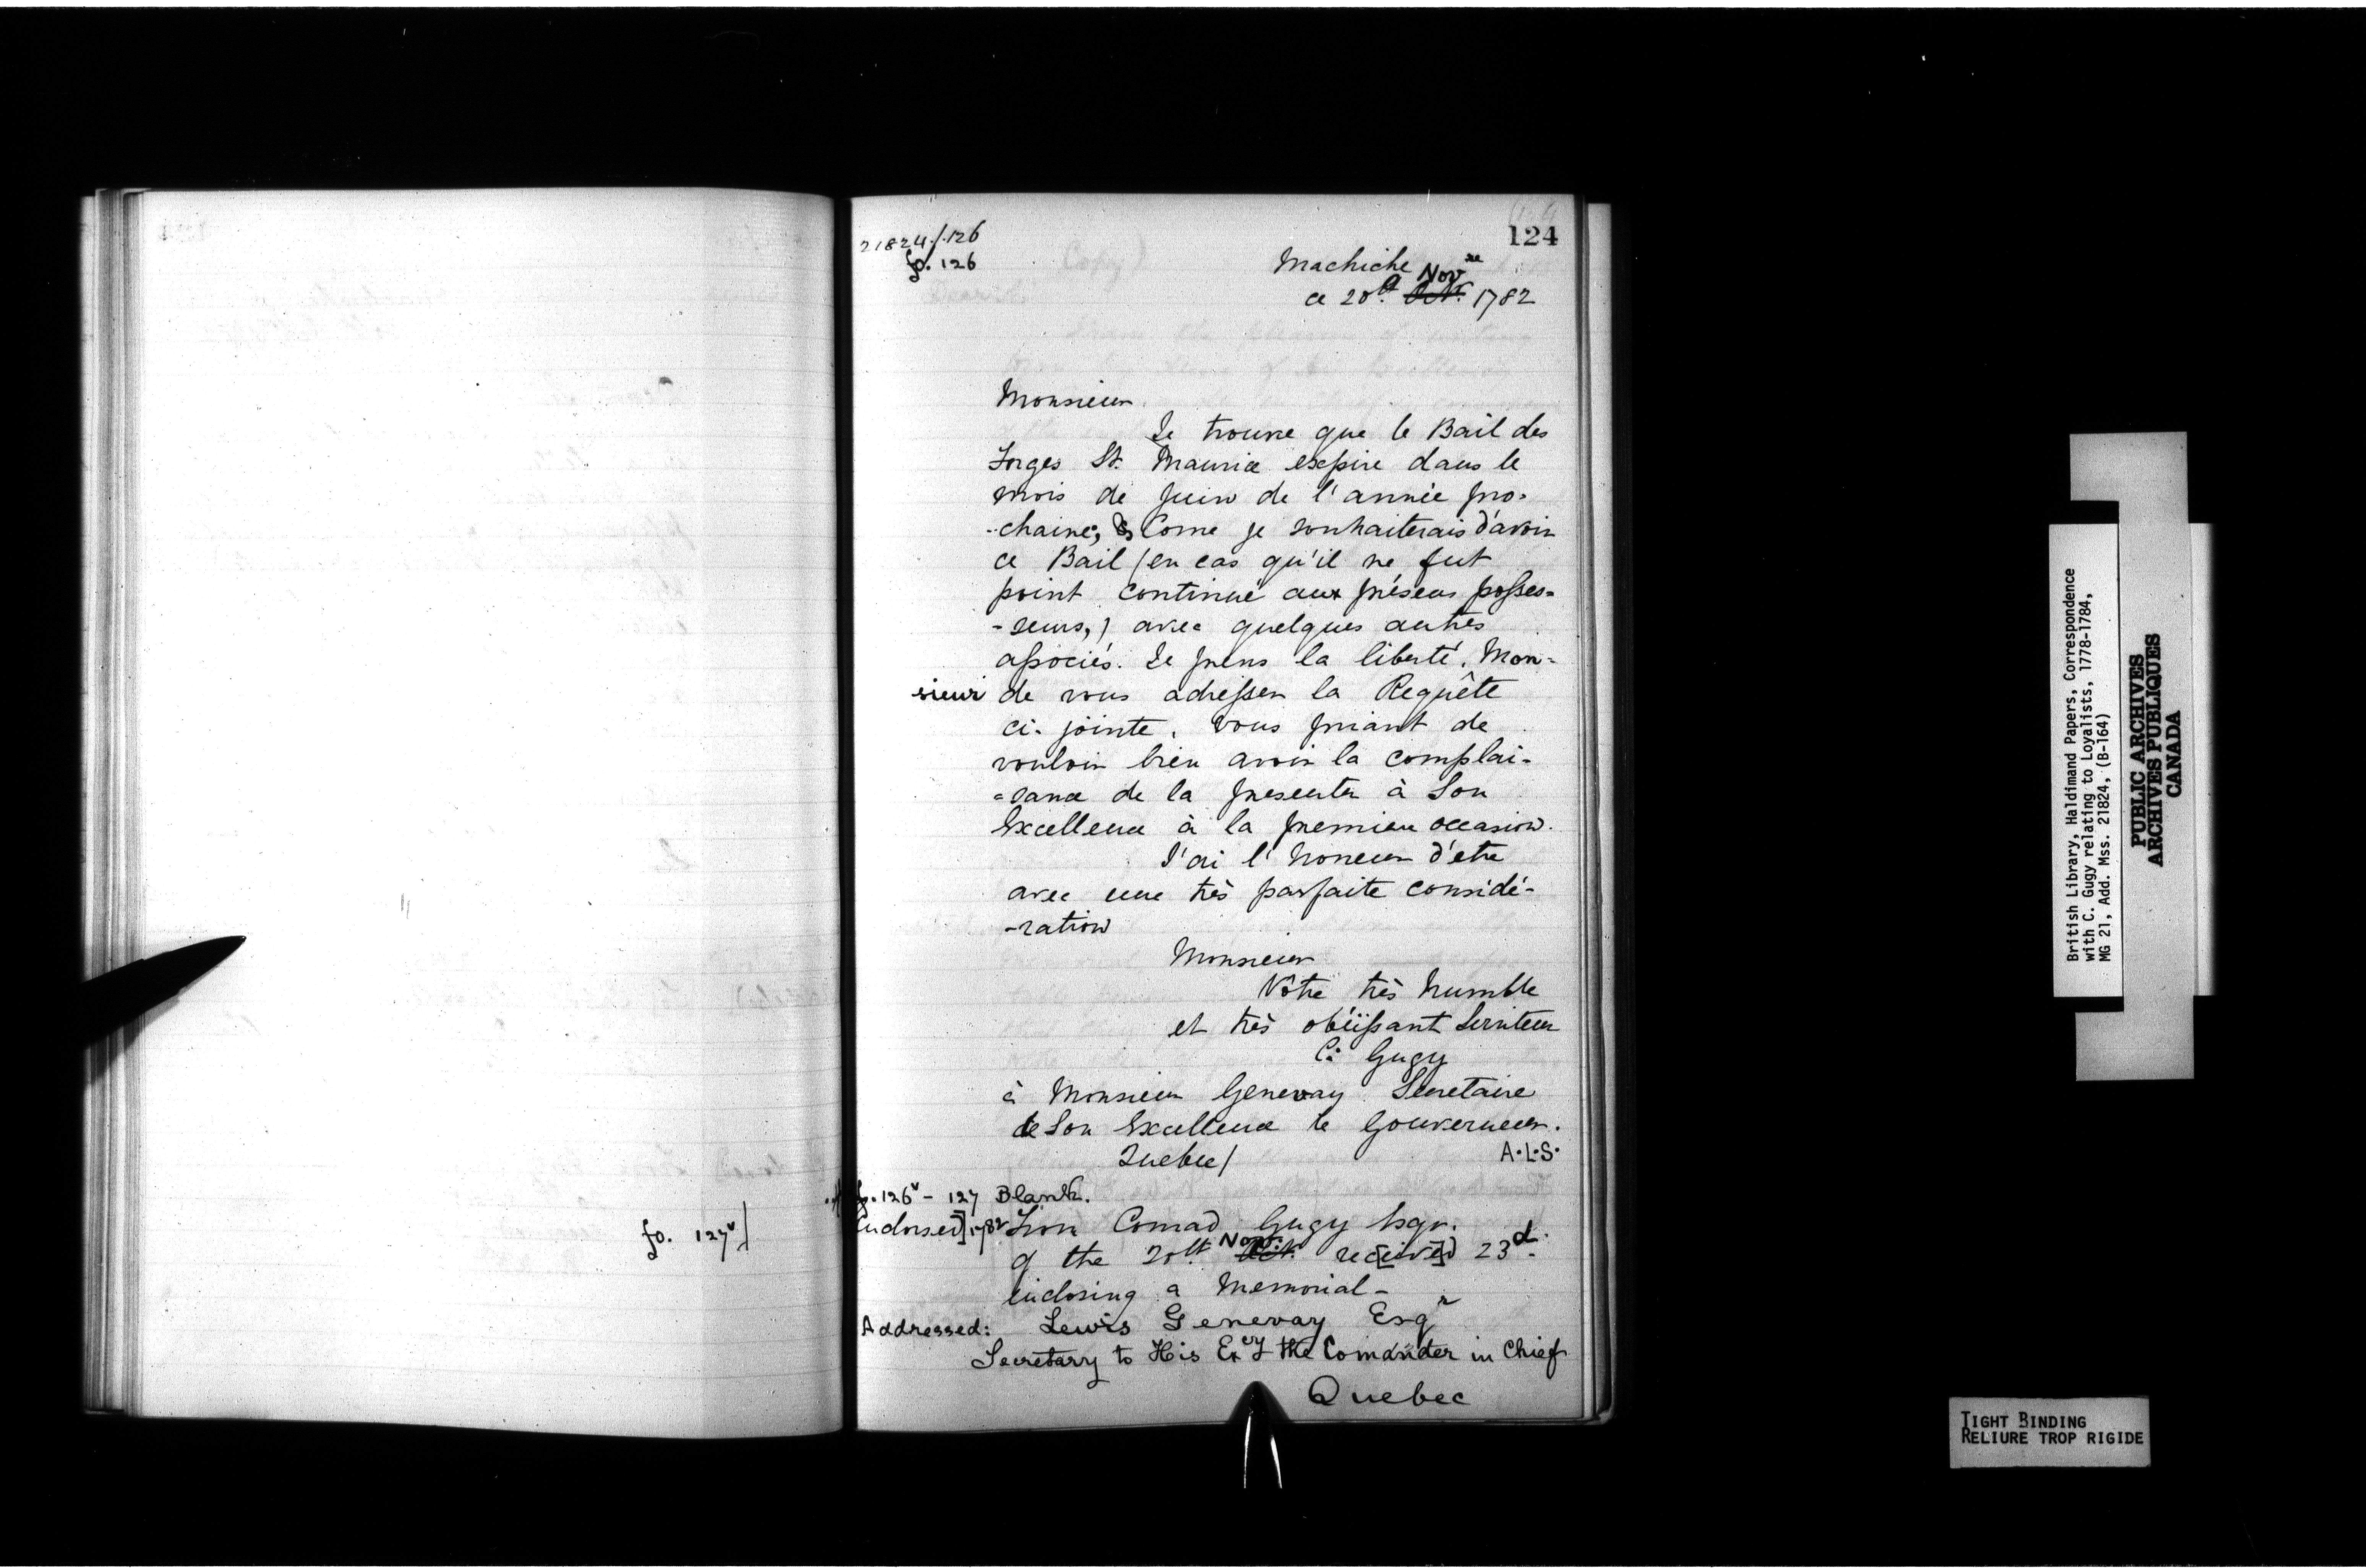 124
21824/.126
fo. 126
Machiche
Nov re
ce 20e. Oct. 1782
Monsieur
Je trouve que le Bail des
Forges St. Maurice expire dans le
mois de Juin de l'année pro-
-chaine; & Come je souhaiterais d'avoir
ce Bail (en cas qu'il ne fut
point continué aux présens posses=
-seurs,) avec quelques autres
associés. Je prens la liberté, Mon=
sieur de vous adresser la Requête
ci-jointe, vous priant de
vouloir bien avoir la complai-
=sance de la presenter à Son
Excellence à la premiere occasion.
J'ai l'honeur d'etre
avec une très parfaite considé-
-ration
Monsieur
Vôtre très humble
et très obéïssant Serviteur
C: Gugy
à Monsieur Genevay Secretaire
de Son Excellence le Gouverneur.
Quebec/
A.L.S.
fo. 126v - 127 Blank.
fo. 127v/
Endorsed] 1782 From Conrad Gugy Esqr.
of the 20th Nov: Oct. rec[eived] 23d.
inclosing a Memorial -
Addressed: Lewis Genevay Esqr
Secretary to His Excy the Comander in Chief
Quebec
British Library, Haldimand Papers, Correspondence
with C. Gugy relating to Loyalists, 1778-1784,
MG 21, Add. Mss. 21824, (B-164)
PUBLIC ARCHIVES
ARCHIVES PUBLIQUES
CANADA
TIGHT BINDING
RELIURE TROP RIGIDE